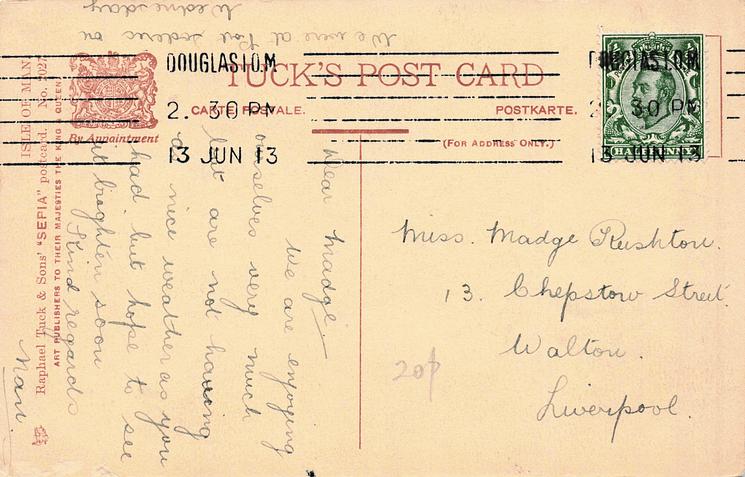 We were at Port Soderic on
Wednesday
TUCK'S POST CARD
CARTE POSTALE.
POSTKARTE.
(FOR ADDRESS ONLY.)
By Appointment
DOUGLAS I.O.M
2. 30 PM
13 JUN 13
DOUGLAS I.O.M
2. 30 PM
13 JUN 13
HALFPENNY
ISLE OF MAN
Raphael Tuck & Sons' "SEPIA" postcard. No. 202
ART PUBLISHERS TO THEIR MAJESTIES THE KING & QUEEN
Dear Madge
We are enjoying
ourselves very much
but are not having
nice weather as you
had but hope to see
it brighten soon
Kind regards
Nan
Miss. Madge Rushton.
13. Chepstow Street.
Walton.
Liverpool.
20p